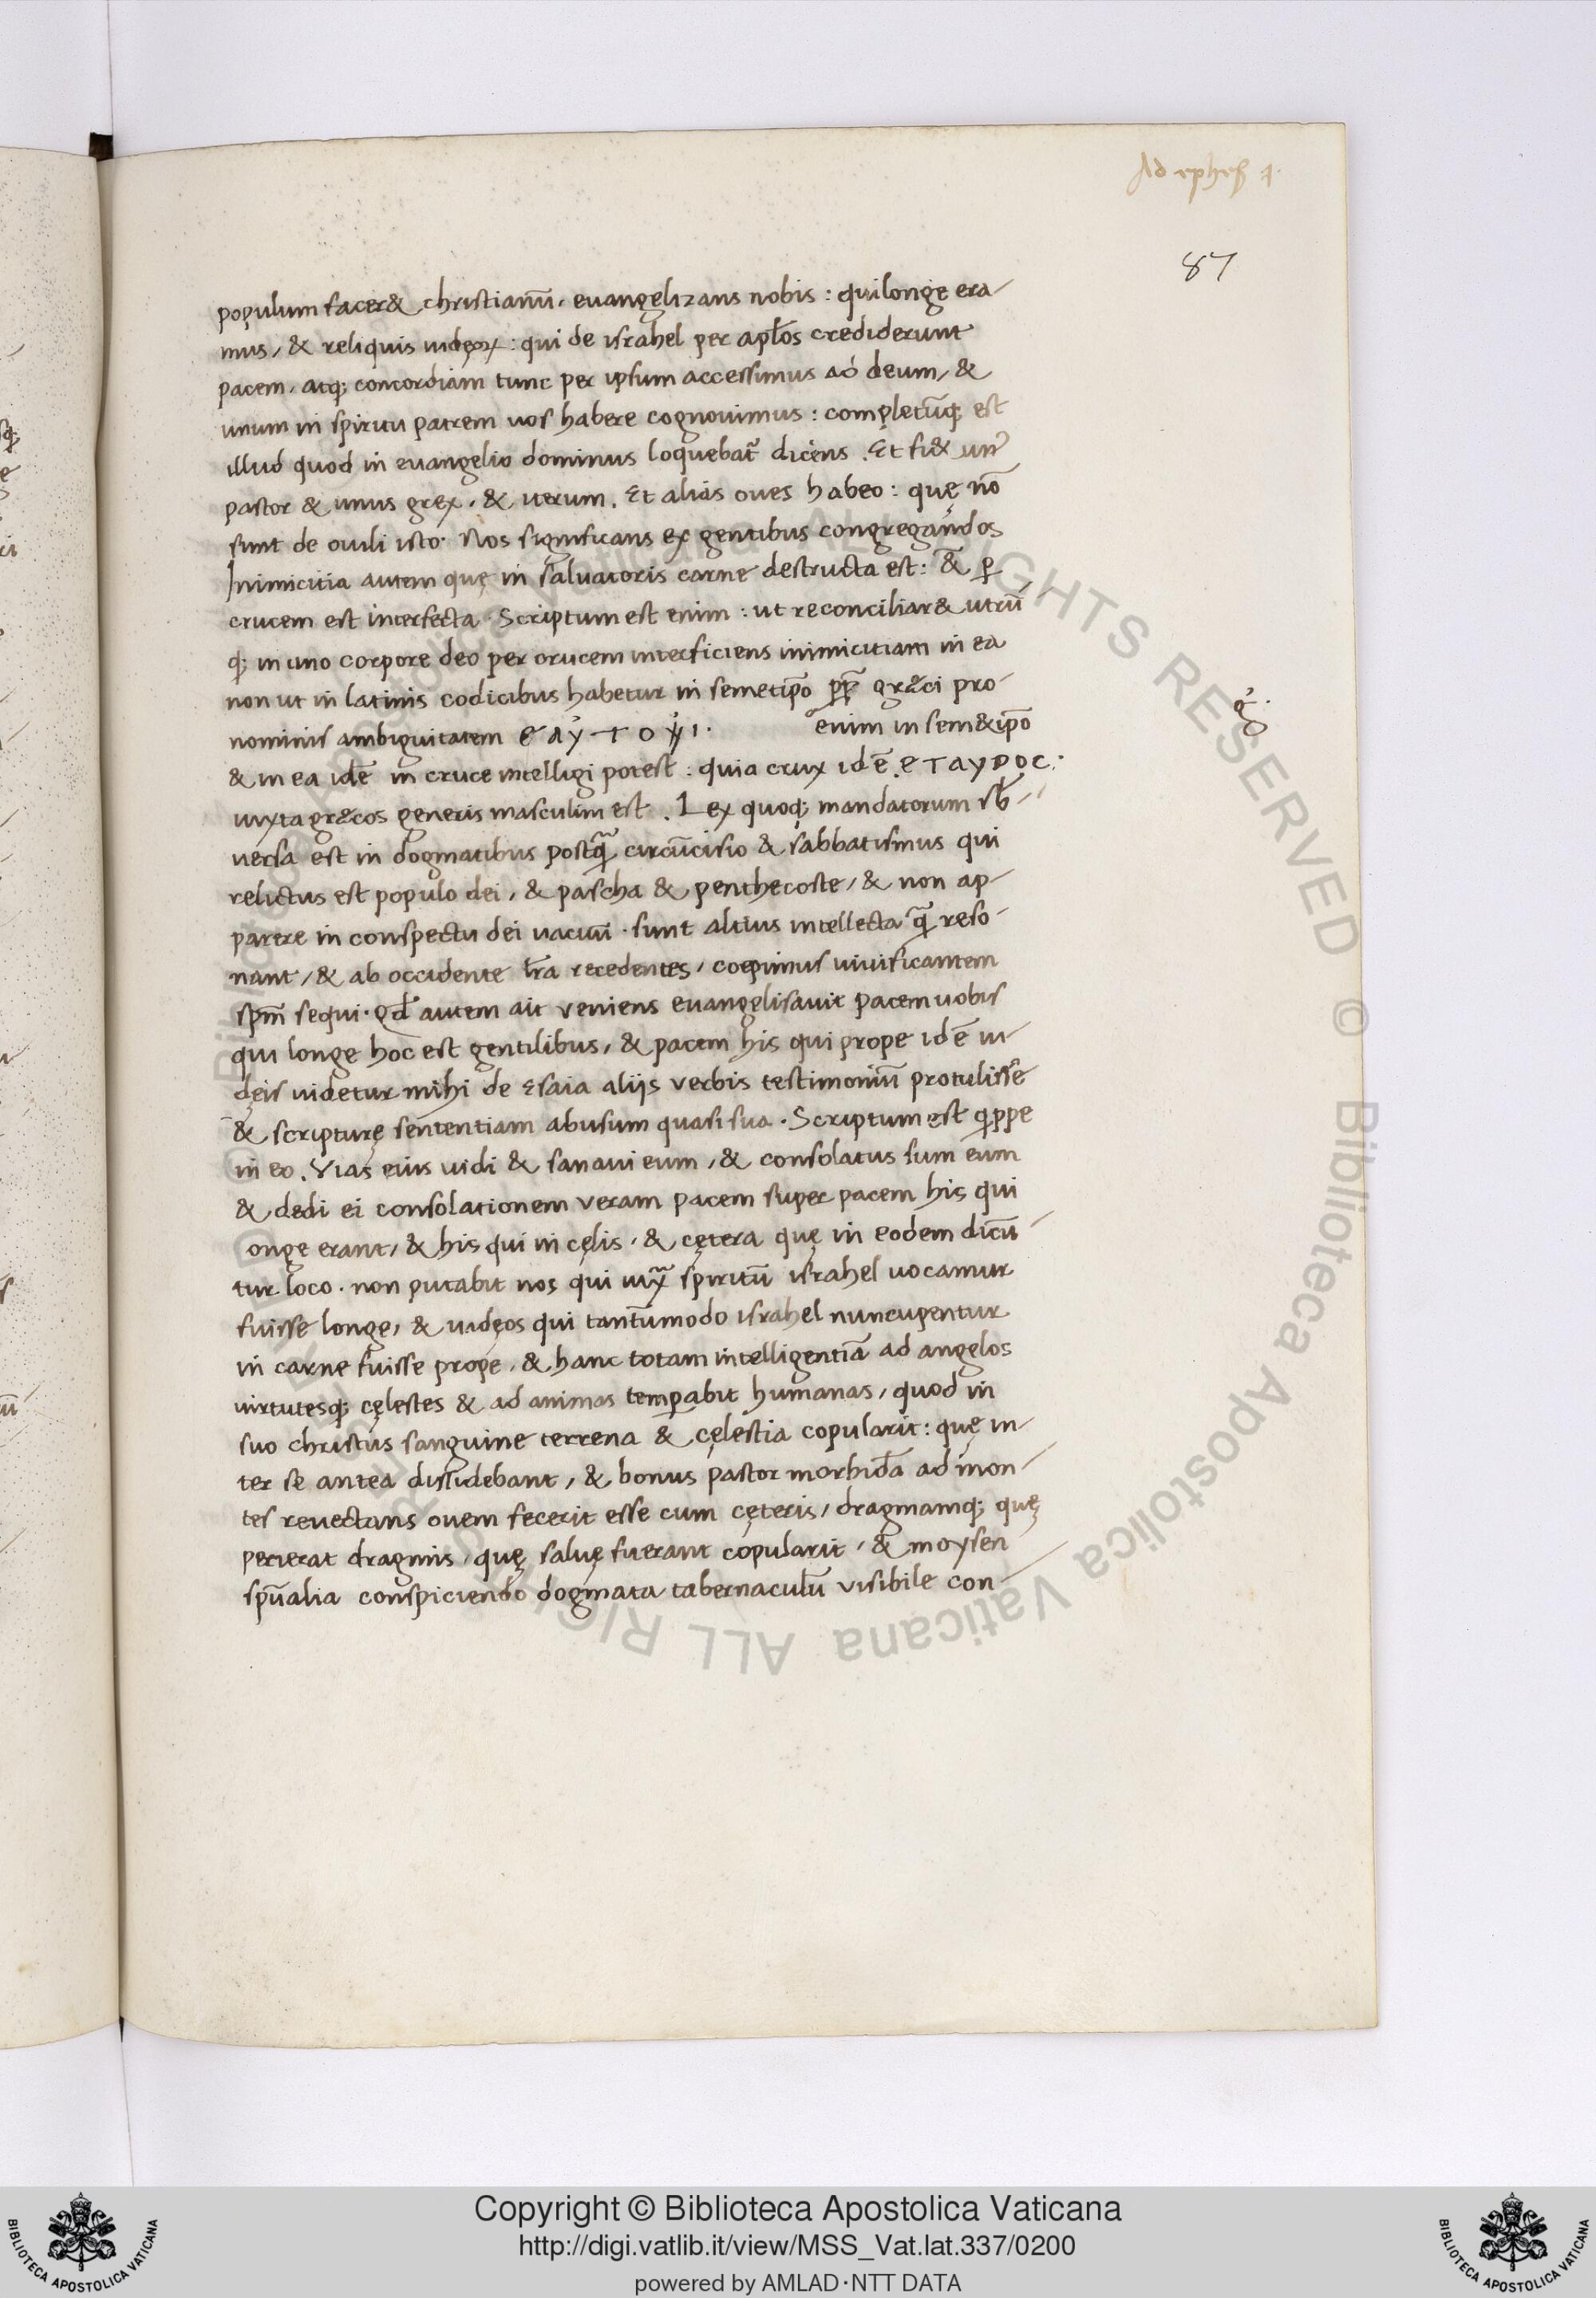 Ad ephes̄ 1.
87
populum facer& christianū, euangelizans nobis : qui longe era-
mus, & reliquis iudęoꝝ : qui de israhel per aptos crediderunt
pacem, atq; concordiam tunc per ipsum accessimus ad deum, &
unum in spiritu patrem uos habere cognouimus : completūq; est
illud quod in euangelio dominus loquebat̄ dicens . Et fi& un᷒
pastor & unus grex, & uerum . Et alias oues habeo : quę nō
sunt de ouili isto . Nos significans ex gentibus congregandos
Inimicitia autem quę in saluatoris carne destructa est : & ꝑ
crucem est interfecta . Scriptum est enim : ut reconciliar& utrū
q; in uno corpore deo per crucem interficiens inimicitiam in ea
non ut in latinis codicibus habetur in semetip̄o pp̄ græci pro-
nominis ambiguitatem ϵ α γ τ ο γ ι . enim in sem&ip̄o
& in ea idē in cruce intelligi potest : quia crux idē . ϲ τ α γ ρ ο ϲ .
iuxta græcos generis masculini est . Lex quoq; mandatorum sb̄-
uersa est in dogmatibus postq̄ circūcisio & sabbatismus qui
relictus est populo dei, & pascha & penthecoste, & non ap-
parere in conspectu dei uacuū . sunt altius intellecta q̄ reso-
nant, & ab occidente lr̄a recedentes, coepimus uiuificantem
spm̄ sequi . qd̄ autem ait veniens euangelisauit pacem uobis
qui longe hoc est gentilibus, & pacem his qui prope idē iu-
dęis uidetur mihi de esaia aliis verbis testimoniū protulisse
& scripturę sententiam abusum quasi sua . Scriptum est qippe
in eo . Vias eius uidi & sanaui eum, & consolatus sum eum
& dedi ei consolationem veram pacem super pacem his qui
onge erant, & his qui in cęlis, & cętera quę in eodem dicū-
tur loco . non putabit nos qui iuxͣ spiritū israhel uocamur
fuisse longe, & iudęos qui tantūmodo israhel nuncupentur
in carne fuisse prope, & hanc totam intelligentiā ad angelos
uirtutesq; cęlestes & ad animas temꝑabit humanas, quod in
suo christus sanguine terrena & cęlestia copularit : quę in-
ter se antea dissidebant, & bonus pastor morbidā ad mon-
tes reuectans ouem fecerit esse cum cęteris, dragmamq; quę
perierat dragmis, quę saluę fuerant copularit, & moysen
spūalia conspiciendo dogmata tabernaculū visibile con-
Copyright © Biblioteca Apostolica Vaticana
http://digi.vatlib.it/view/MSS_Vat.lat.337/0200
powered by AMLAD·NTT DATA